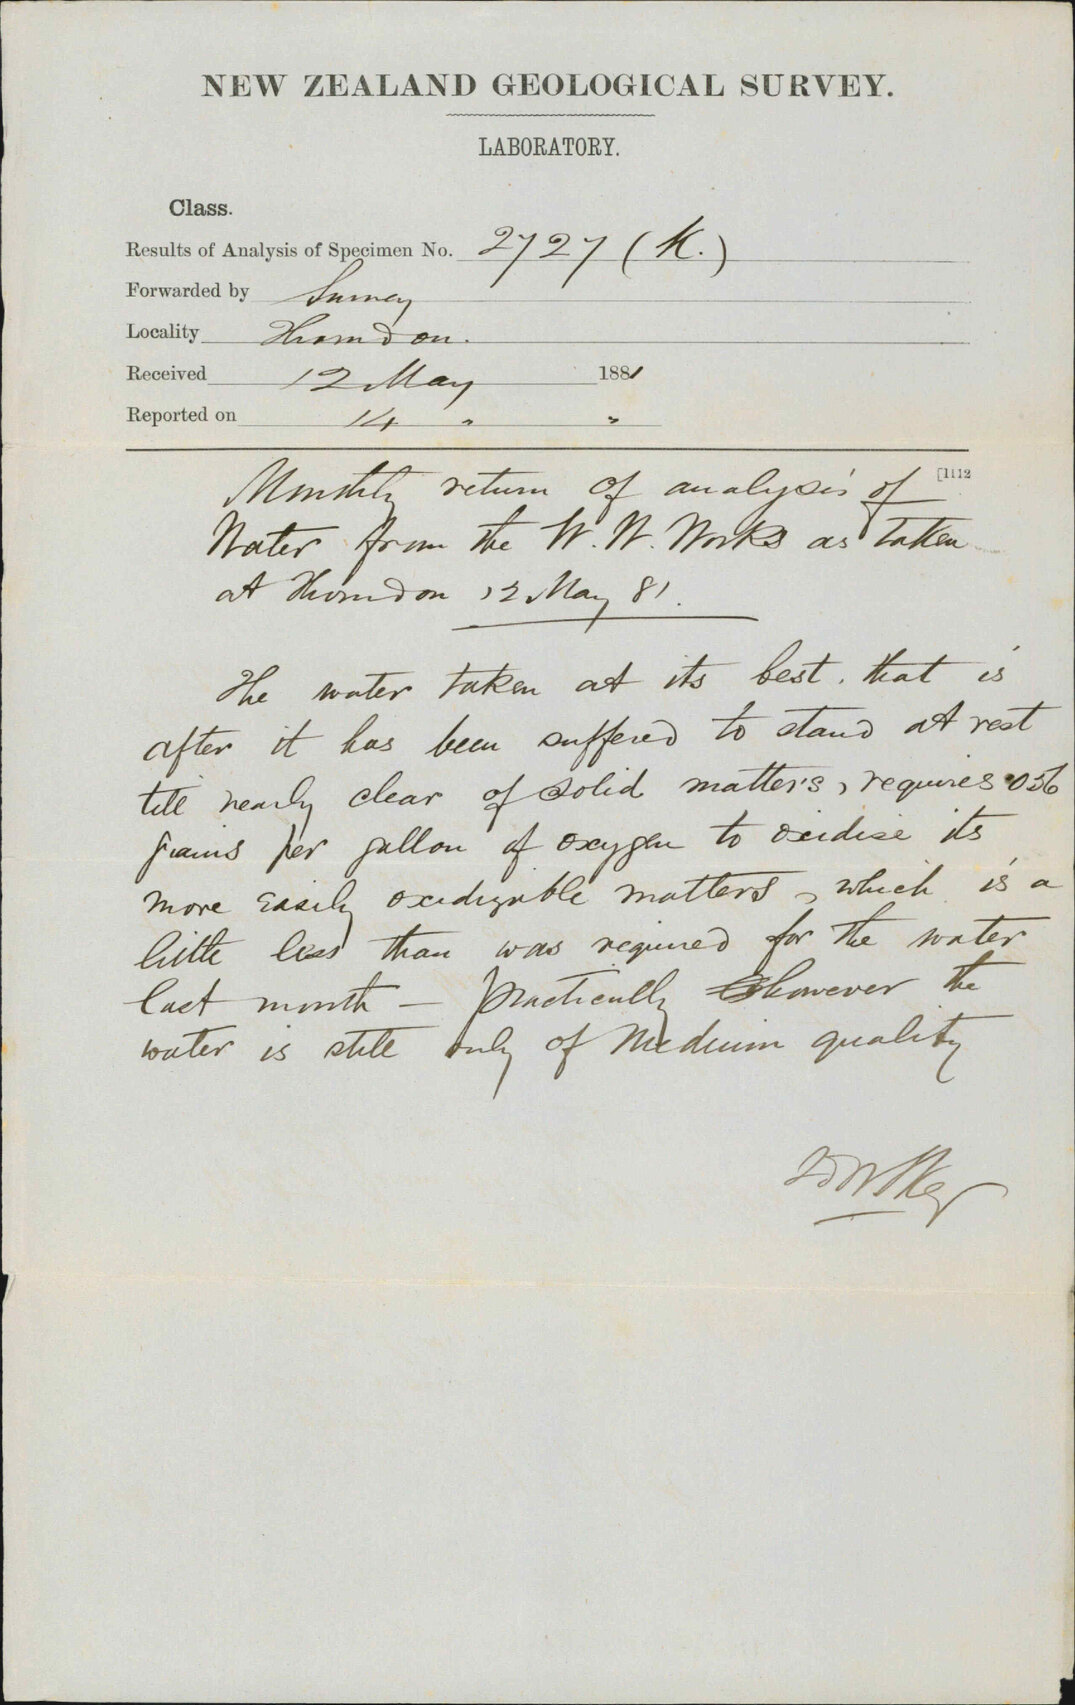 NEW ZEALAND GEOLOGICAL SURVEY.
LABORATORY.
Class.
Results of Analysis of Specimen No. 2727 (K.)
Forwarded by Survey
Locality Thorndon.
Received 12 May 1881
Reported on 14 " "
[1112
Monthly return of analysis of
Water from the W. W. Works as taken
at Thorndon 12 May 81.
The water taken at its best, that is
after it has been suffered to stand at rest
till nearly clear of solid matters, requires .056
grains per gallon of oxygen to oxidise its
more easily oxidizable matters, which is a
little less than was required for the water
last month — practically however the
water is still only of medium quality